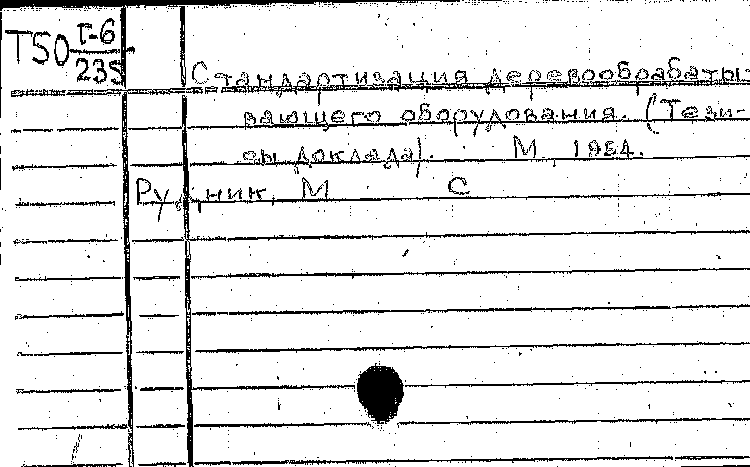 Т50 Т-6
235
Стандартизация деревообрабаты-
вающего оборудования. (Тези-
сы доклада). М, 1954.
Рудник, М С